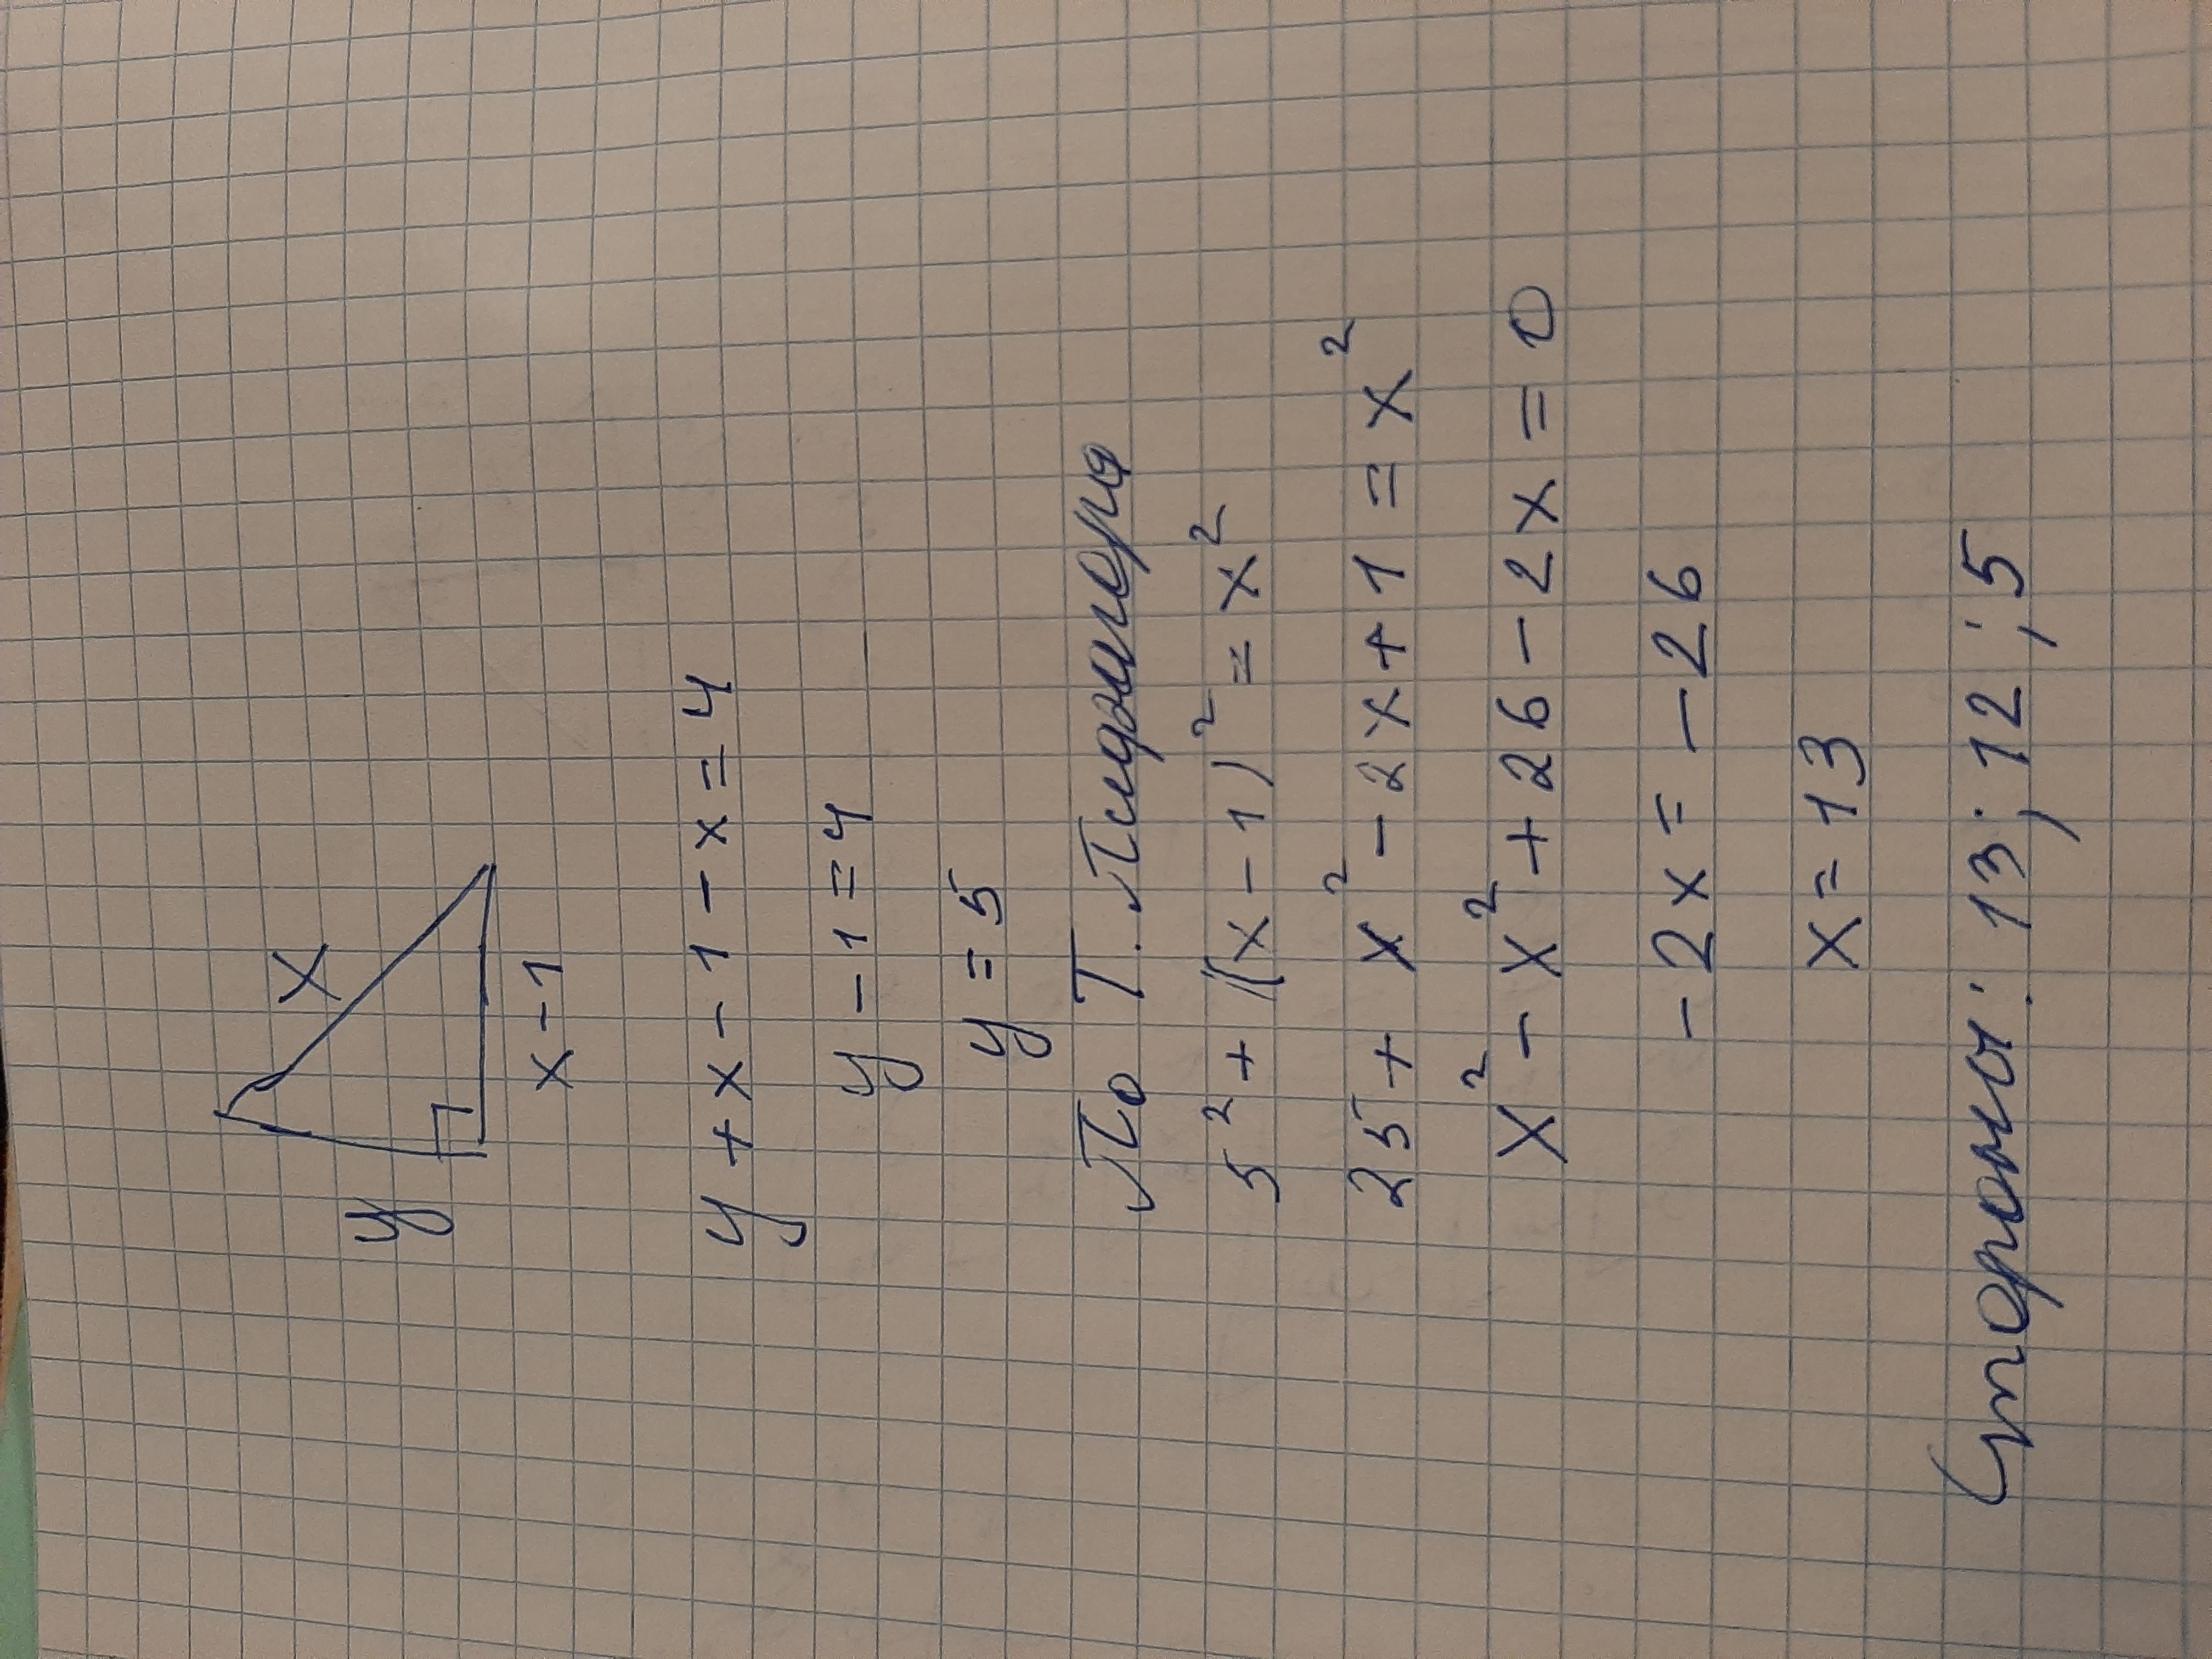 x
y
x - 1
y + x - 1 - x = 4
y - 1 = 4
y = 5
По Т. Пифагора
5² + (x - 1)² = x²
25 + x² - 2x + 1 = x²
x² - x² + 26 - 2x = 0
-2x = -26
x = 13
Стороны: 13; 12; 5